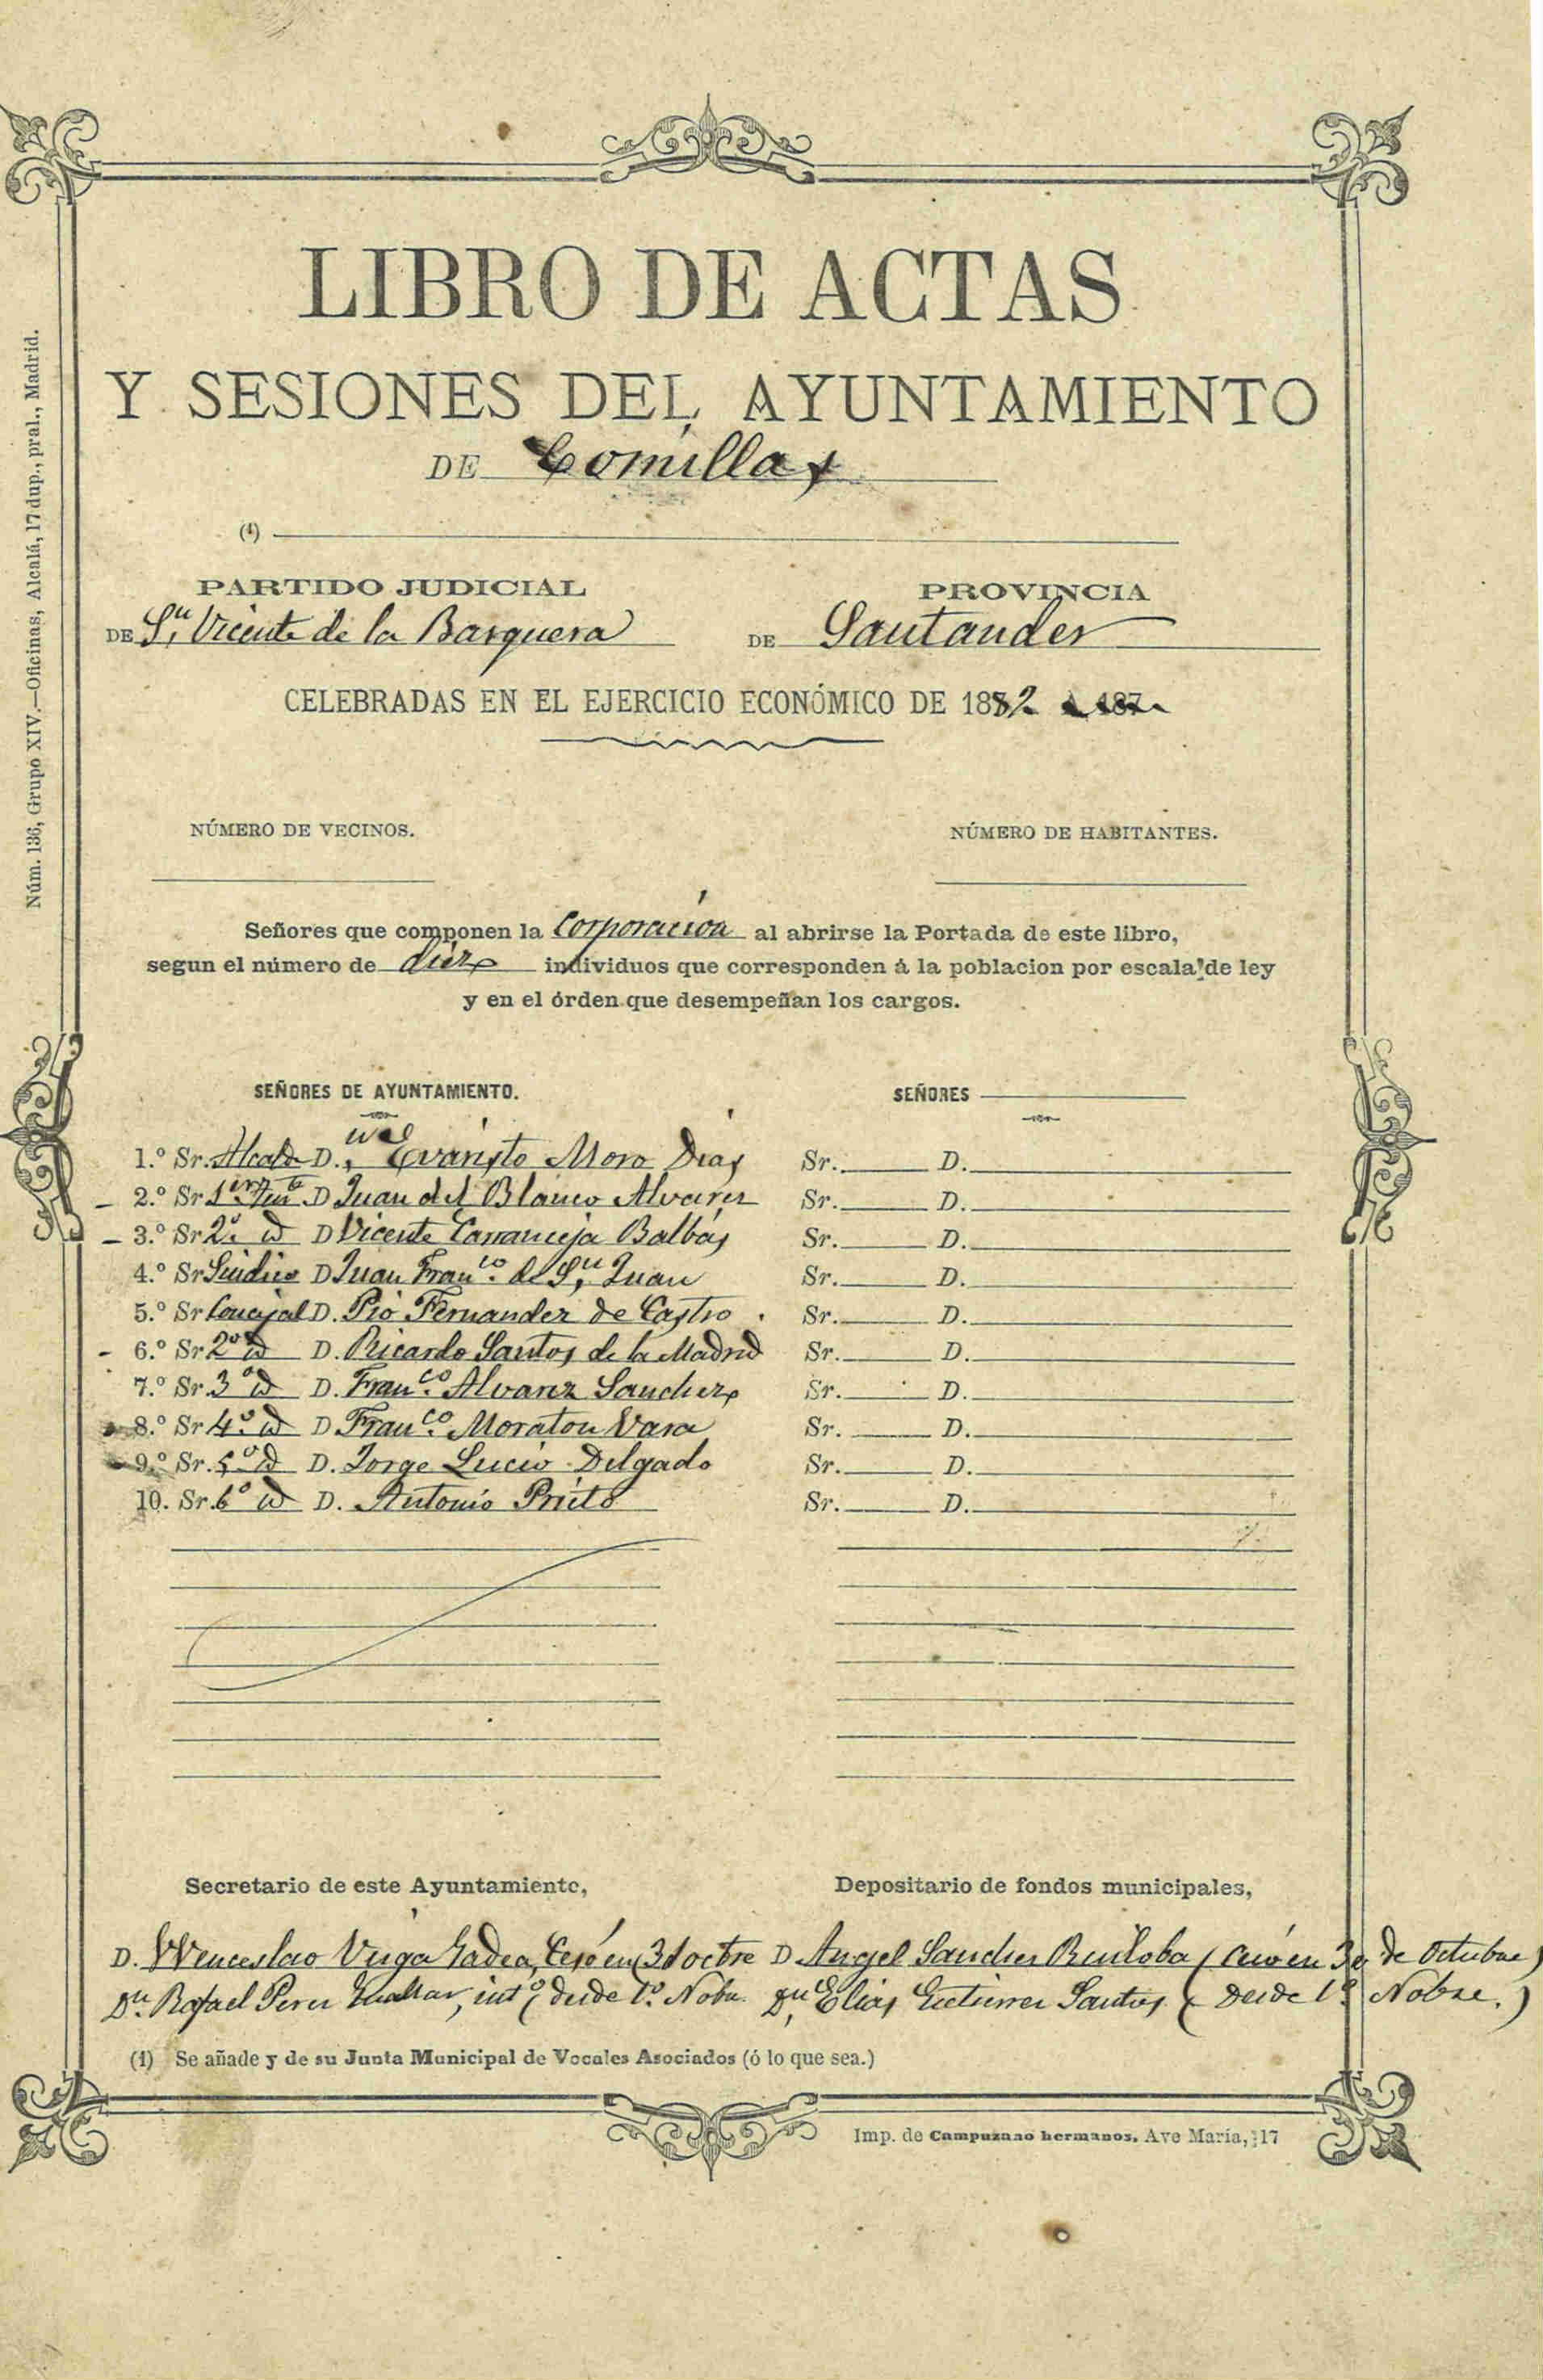 LIBRO DE ACTAS
Y SESIONES DEL AYUNTAMIENTO
DE Comillas
(1)
PARTIDO JUDICIAL
DE Sn. Vicente de la Barquera
PROVINCIA
DE Santander
CELEBRADAS EN EL EJERCICIO ECONÓMICO DE 1882 á 187
NÚMERO DE VECINOS.
NÚMERO DE HABITANTES.
Señores que componen la Corporacion al abrirse la Portada de este libro,
segun el número de diez individuos que corresponden á la poblacion por escala de ley
y en el órden que desempeñan los cargos.
SEÑORES DE AYUNTAMIENTO.
1.º Sr. Alcalde D. Evaristo Moro Dias
2.º Sr 1er Tente D Juan del Blanco Alvarez
3.º Sr 2º id D Vicente Carranceja Balbás
4.º Sr Sindico D Juan Franco. de Sn. Juan
5.º Sr Concejal D. Pio Fernandez de Castro
6.º Sr 2º id D. Ricardo Santos de la Madrid
7.º Sr 3º id D. Franco. Alvarez Sanchez
8.º Sr 4º id D Franco. Moraton Vara
9.º Sr. 5º id D. Jorge Lucio Delgado
10. Sr. 6º id D. Antonio Prieto
SEÑORES
Sr. D.
Sr. D.
Sr. D.
Sr. D.
Sr. D.
Sr. D.
Sr. D.
Sr. D.
Sr. D.
Sr. D.
Secretario de este Ayuntamiento,
D. Wenceslao Veiga Gadea, Cesó en 31 octbre
Dn. Rafael Perez, intº (desde 1º. Nobe.
Depositario de fondos municipales,
D. Angel Sanchez Ruiloba (Cesó en 30 de Octubre)
Dn. Elias Gutierrez Santos (Desde 1º Nobre.)
(1) Se añade y de su Junta Municipal de Vocales Asociados (ó lo que sea.)
Imp. de Campuzano hermanos. Ave María, 17
Núm. 136, Grupo XIV.—Oficinas, Alcalá, 17 dup., pral., Madrid.